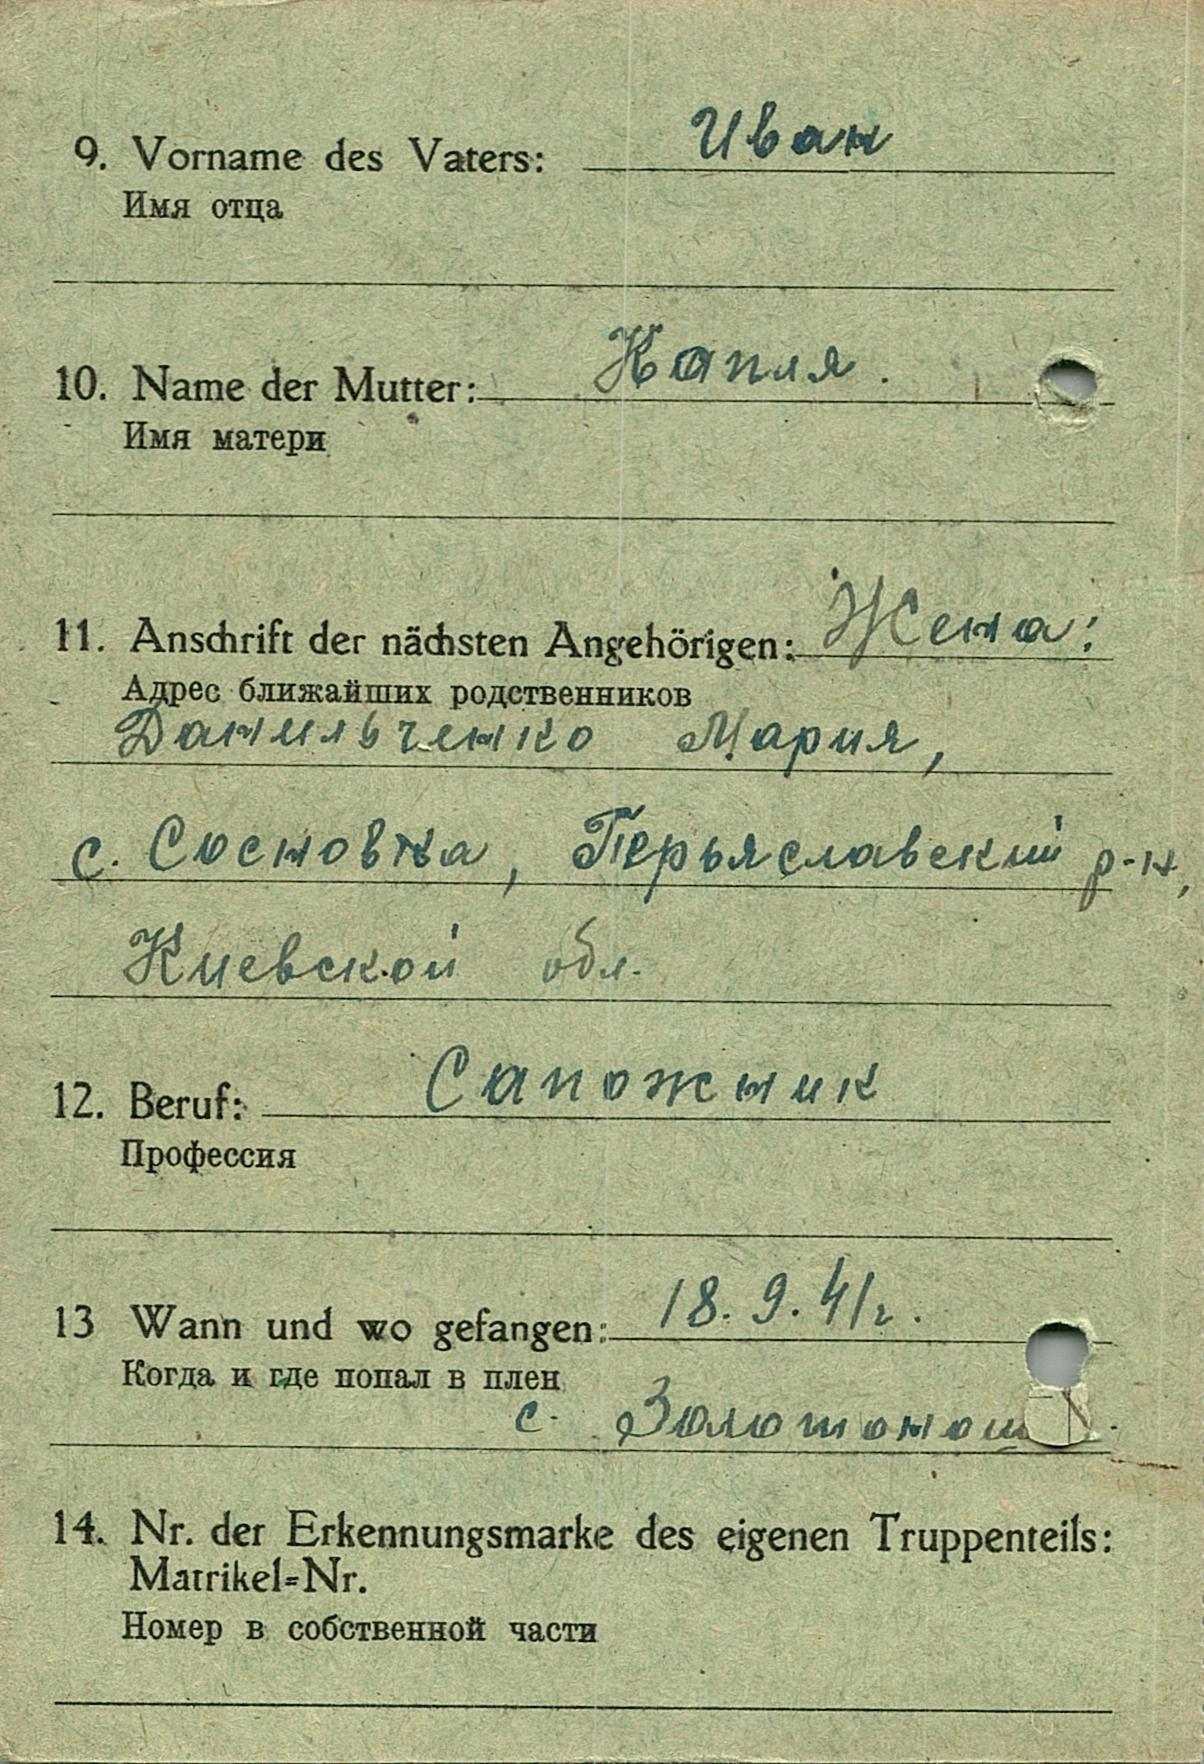 9. Vorname des Vaters: Иван
Имя отца
10. Name der Mutter: Капля.
Имя матери
11. Anschrift der nächsten Angehörigen: Жена:
Адрес ближайших родственников
Данильченко Мария,
с. Сосновка, Перьяславский р-н,
Киевской обл.
12. Beruf: Сапожник
Профессия
13 Wann und wo gefangen: 18.9.41г.
Когда и где попал в плен
с.
14. Nr. der Erkennungsmarke des eigenen Truppenteils:
Matrikel=Nr.
Номер в собственной части